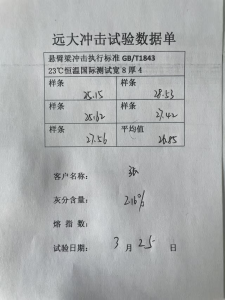 远大冲击试验数据单
悬臂梁冲击执行标准 GB/T1843
23℃恒温国际测试宽 8 厚 4
样条 样条
25.15 28.53
样条 样条
25.62 27.42
样条 平均值
27.56 26.85
客户名称:
灰分含量: 2.16%
熔指数:
试验日期: 3 月 25 日